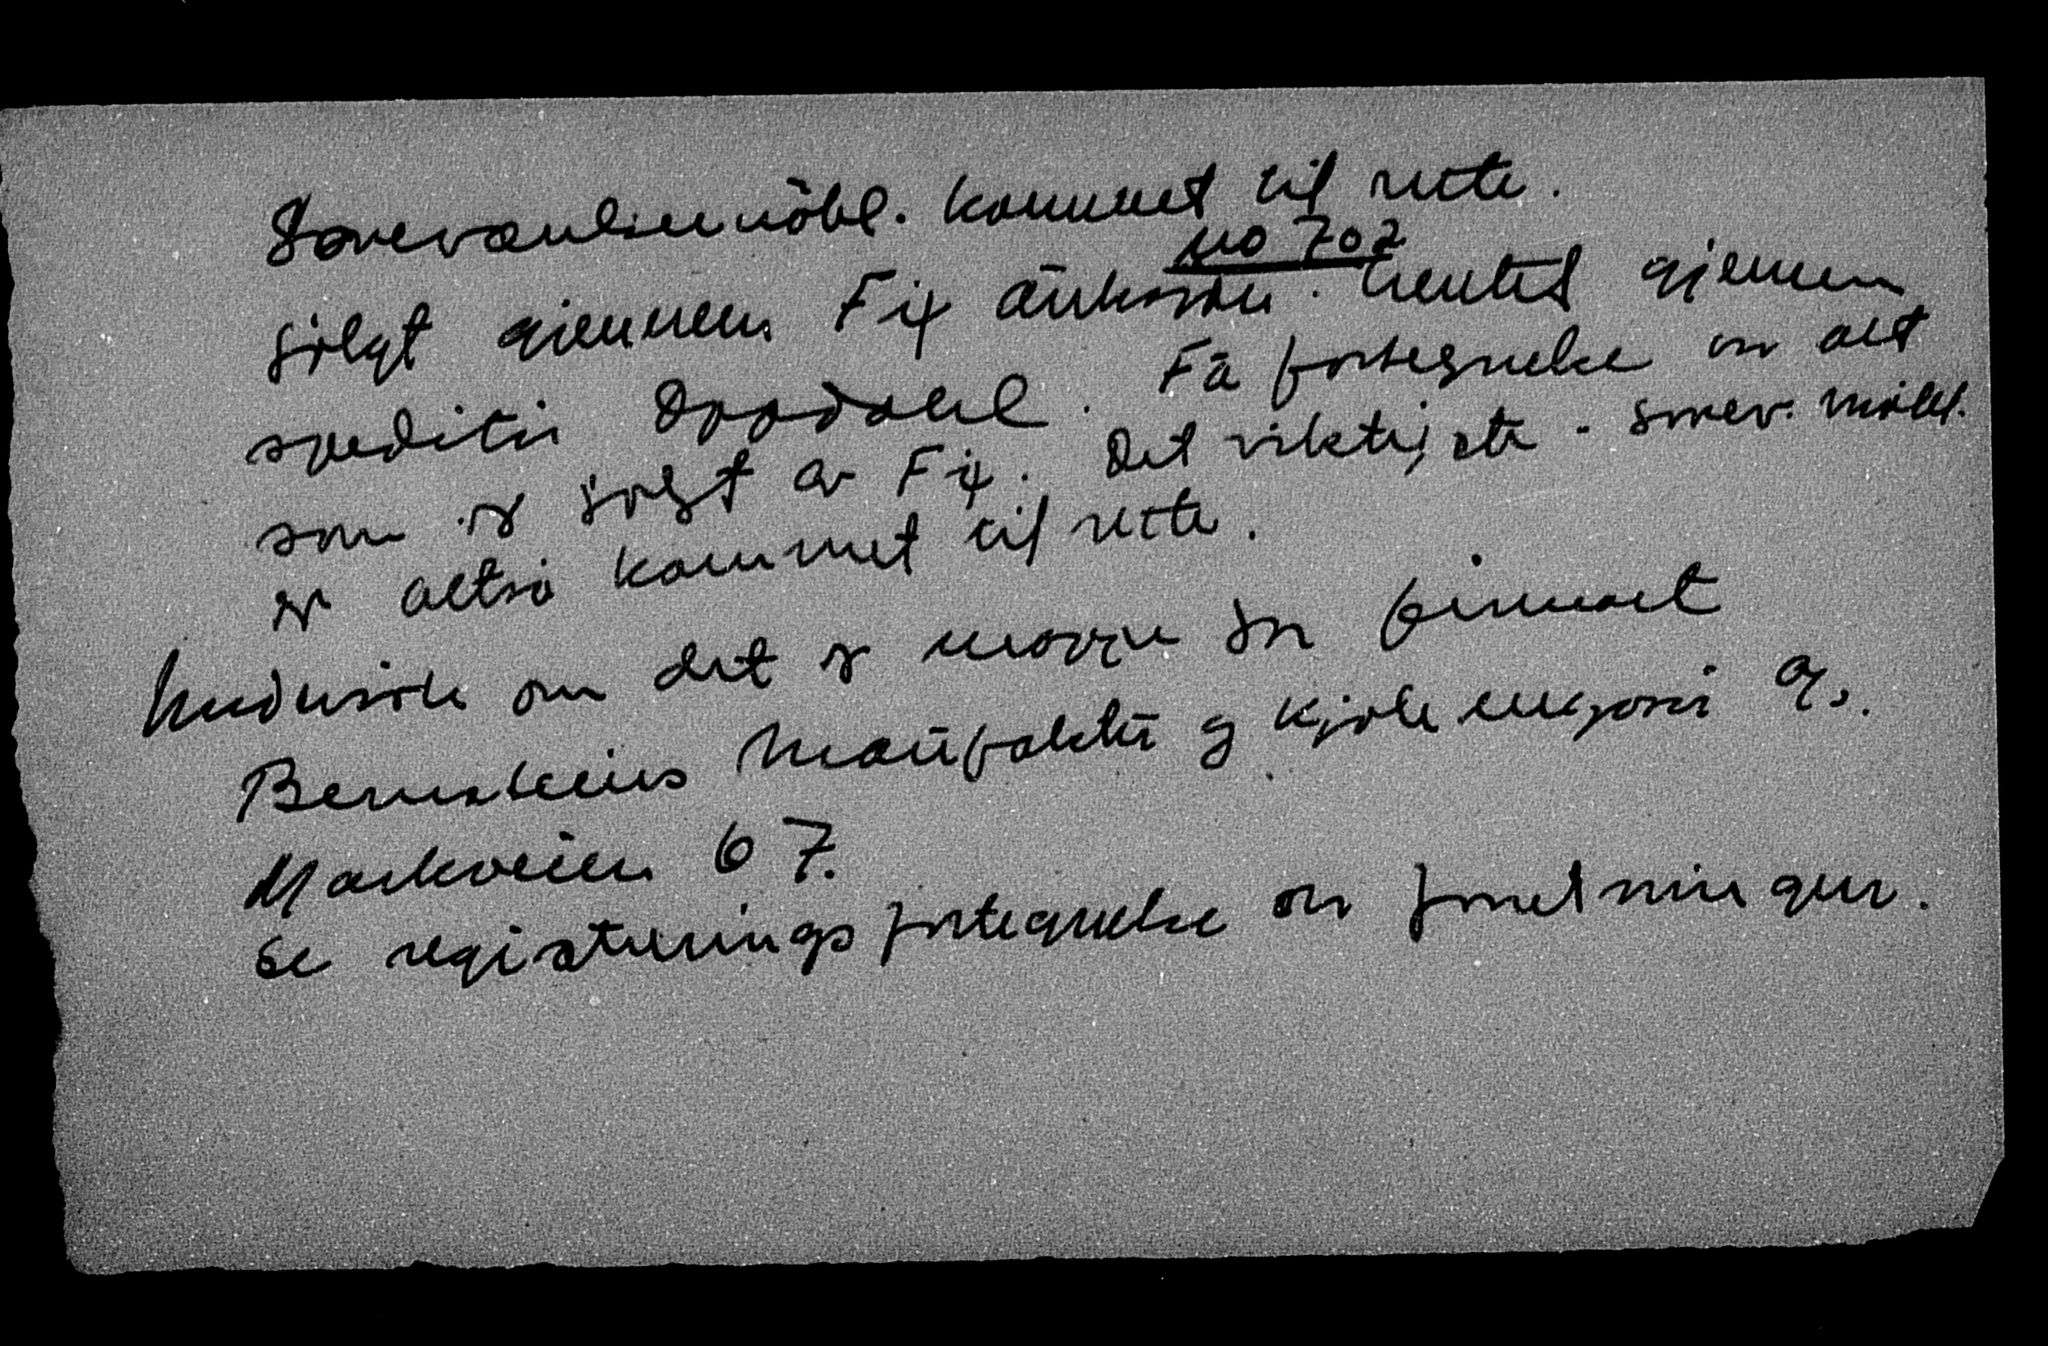 Soveværelsemöbl. kommet til rette.
No 702
solgt gjennem Fix auksjon. hentet gjennem
speditør Oppdahl. Få fortegnelse om alt
som er solgt av Fix. Det viktigste - sovev. møbl.
er altså kommet til rette.
Undersøk om det er noggen som finnert
Bernsteins Manufaktur og kjole magasin A/s.
Markveien 67.
Se registreringsfortegnelse on forretningen.